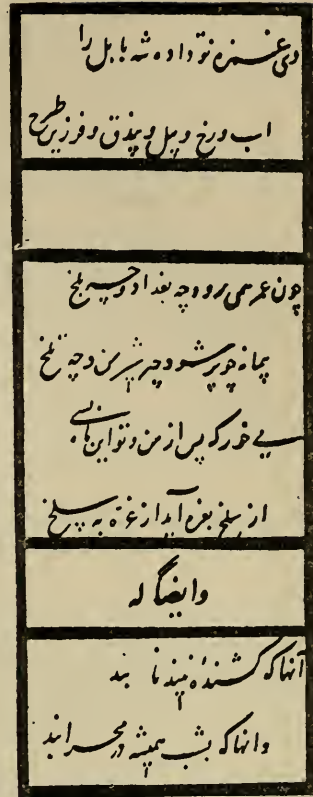 وی غمزه تو داده شه بابل را
اسب و رخ و پیل و بیذق و فرزین طرح
چون عمر همی رود چه بغداد و چه بلخ
پیمانه چو پر شود چه شیرین و چه تلخ
می خور که پس از من و تو این ماه بسی
از سلخ بغره آید از غره به سلخ
وایضاً له
آنها که کشنده نبیذ نابند
وانها که بشب همیشه در محرابند